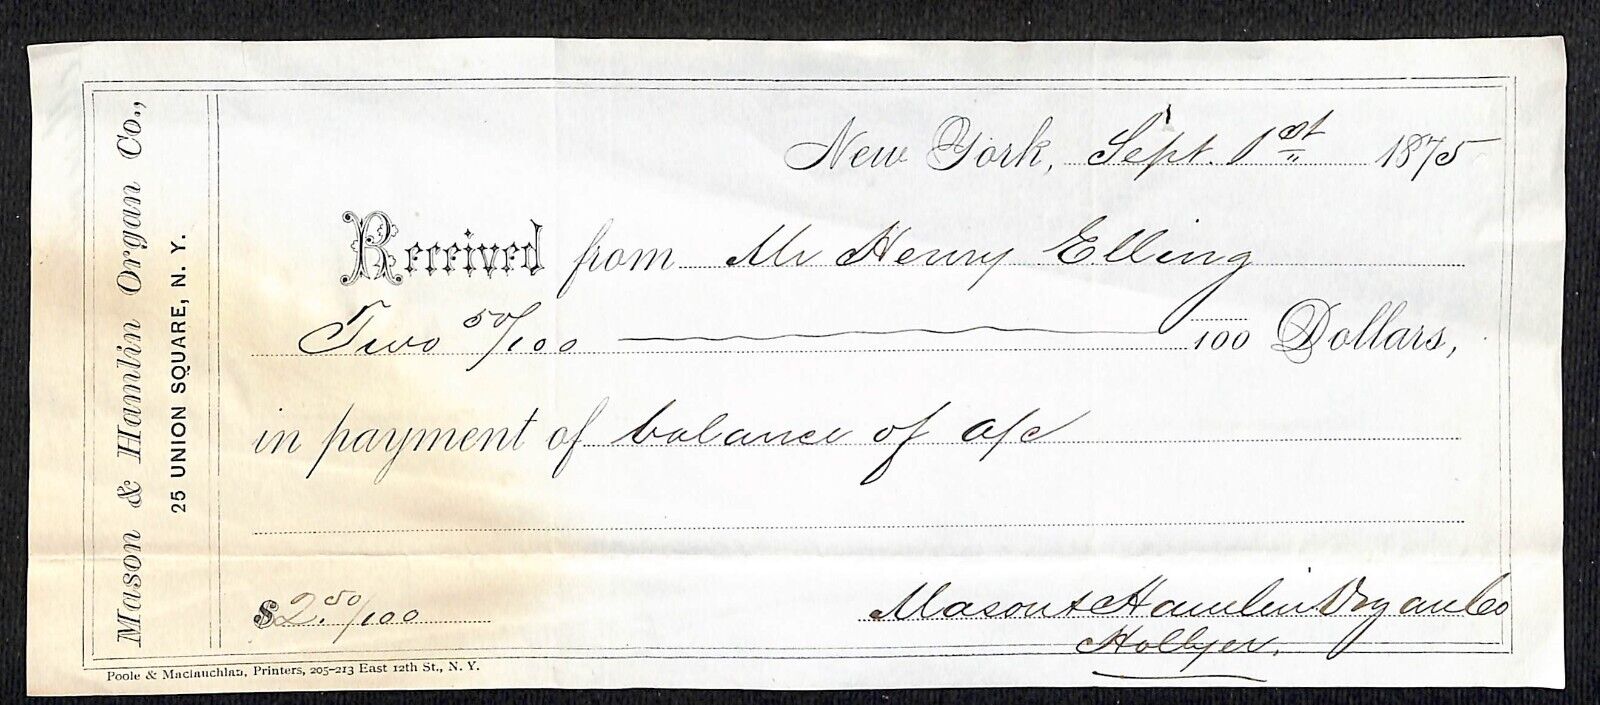 Mason & Hamlin Organ Co.,
25 UNION SQUARE, N. Y.
New York, Sept. 1st 1875
Received from Mr Henry Elling
Two 50/100 100 Dollars,
in payment of balance of a/c
$2.50/100
Mason & Hamlin Organ Co
Hollyer.
Poole & Maclauchlan, Printers, 205-213 East 12th St., N. Y.